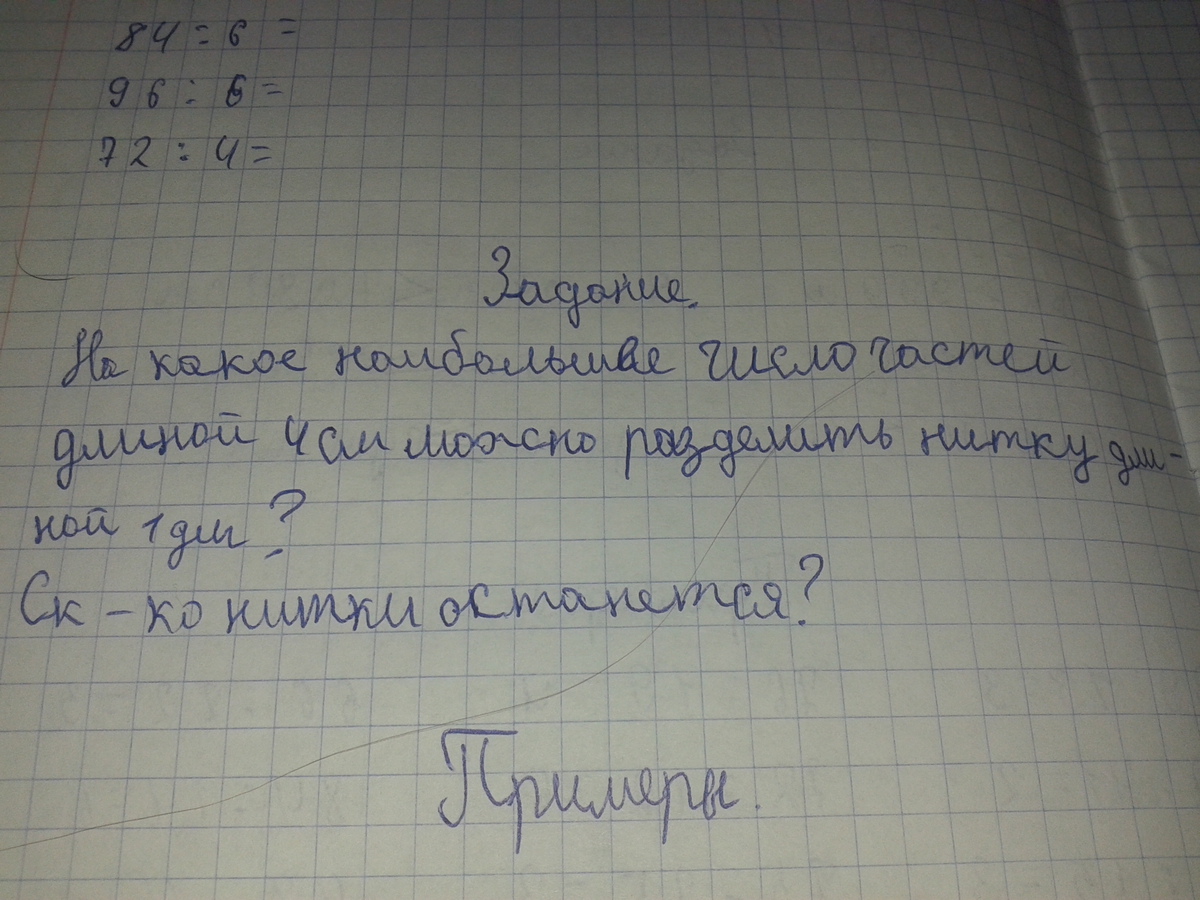 84 : 6 =
96 : 6 =
72 : 4 =
Задание.
На какое наибольшее число частей
длиной 4 см можно разделить нитку дли-
ной 1 дм?
Ск - ко нитки останется?
Примеры.